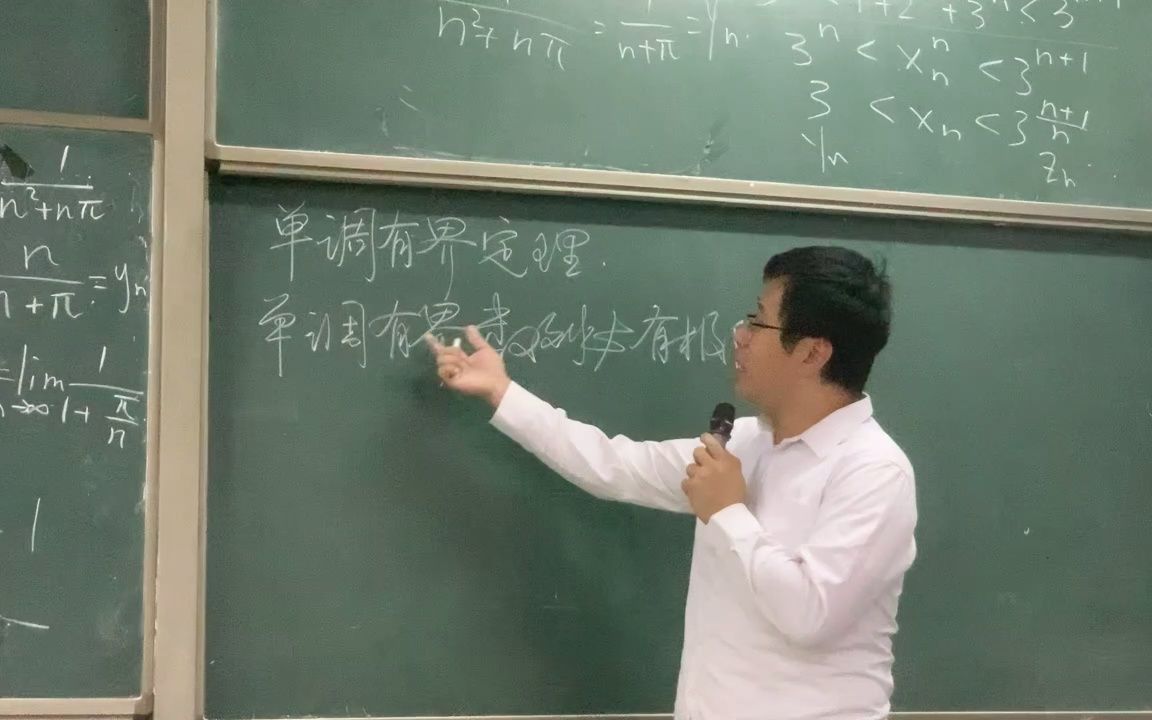 1
n²+nπ
n
n+π = yn
= lim 1
n→∞ 1+ π
n
1
n²+nπ = 1/(n+π) = yn.
<1+2ⁿ+3ⁿ<3
3ⁿ < xₙⁿ < 3ⁿ⁺¹
3 < xₙ < 3^(n+1)/n
yn
zn.
单调有界定理.
单调有界数列必有极